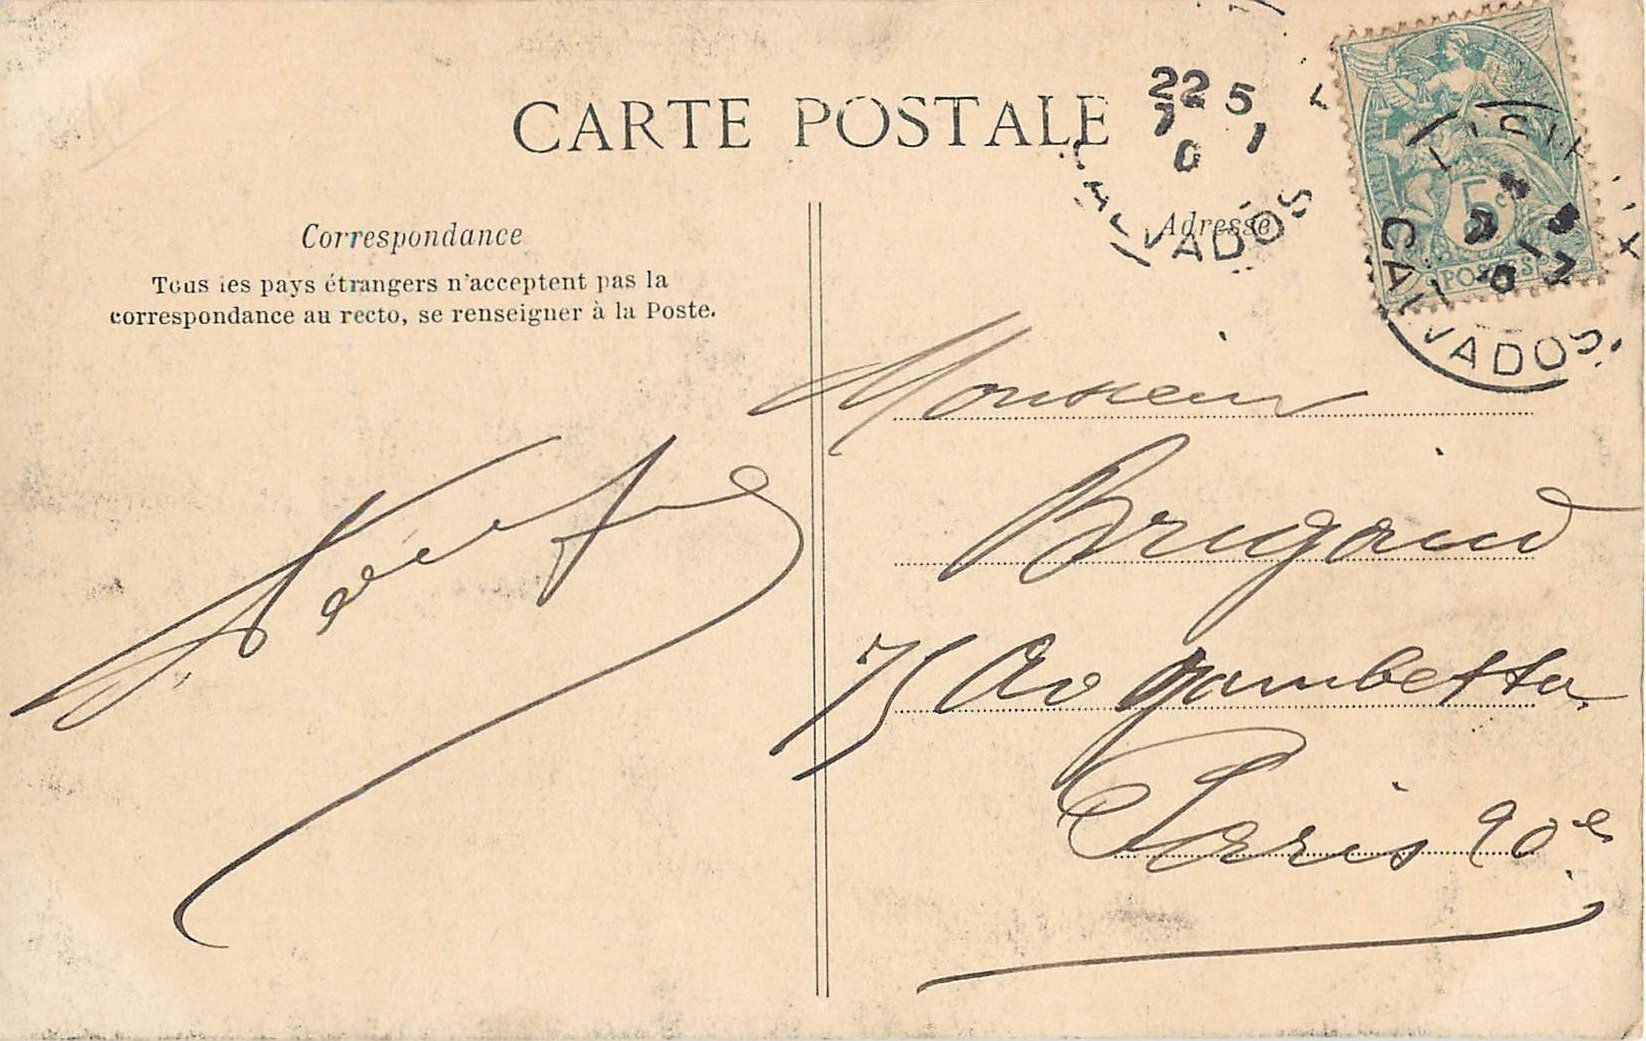 CARTE POSTALE
Correspondance
Tous les pays étrangers n'acceptent pas la
correspondance au recto, se renseigner à la Poste.
Adresse
22 5
CALVADOS
5
POSTES
CALVADOS
Monsieur
Brigaud
75 Av gambetta
Paris 20e